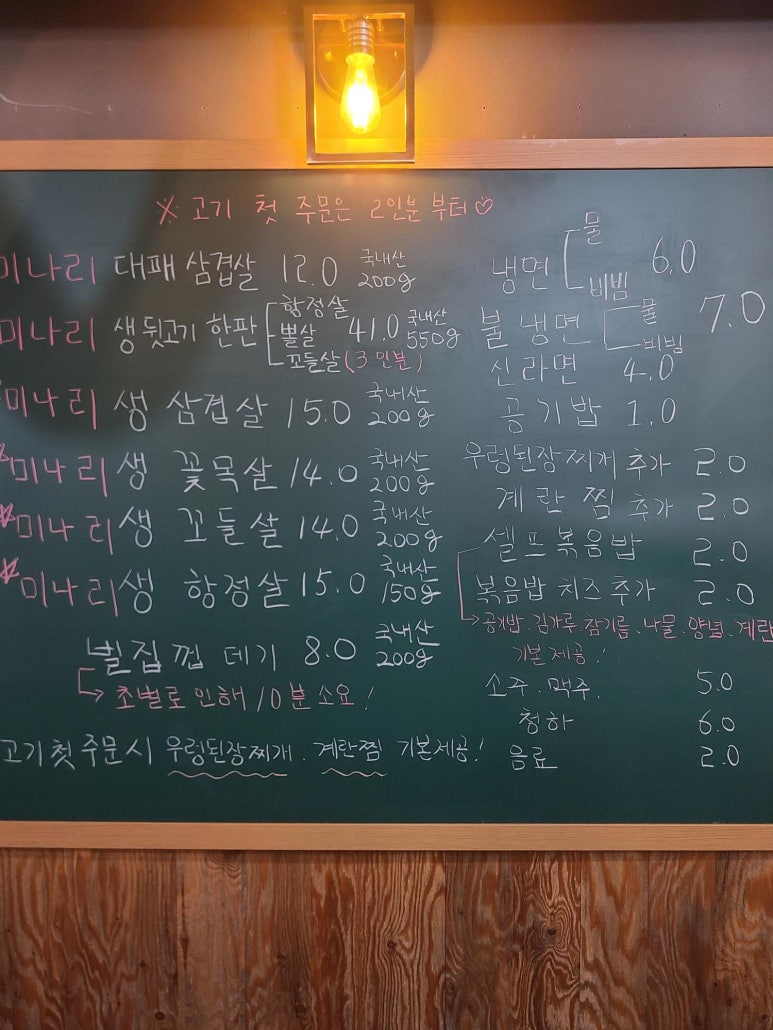 ※ 고기 첫 주문은 2인분 부터♡
미나리 대패 삼겹살 12.0 국내산 200g
미나리 생 뒷고기 한판 항정살 뽈살 꼬들살 (3인분) 41.0 국내산 550g
미나리 생 삼겹살 15.0 국내산 200g
미나리 생 꽃목살 14.0 국내산 200g
미나리 생 꼬들살 14.0 국내산 200g
미나리 생 항정살 15.0 국내산 150g
벌집껍데기 8.0 국내산 200g
→ 초벌로 인해 10분 소요!
고기 첫 주문시 우렁된장찌개. 계란찜 기본제공!
냉면 물 비빔 6.0
불냉면 물 비빔 7.0
신라면 4.0
공기밥 1.0
우렁된장찌개 추가 2.0
계란찜 추가 2.0
셀프볶음밥 2.0
볶음밥 치즈추가 2.0
→ 공기밥. 김가루. 참기름. 나물. 양념. 계란
기본제공!
소주. 맥주. 5.0
청하 6.0
음료 2.0